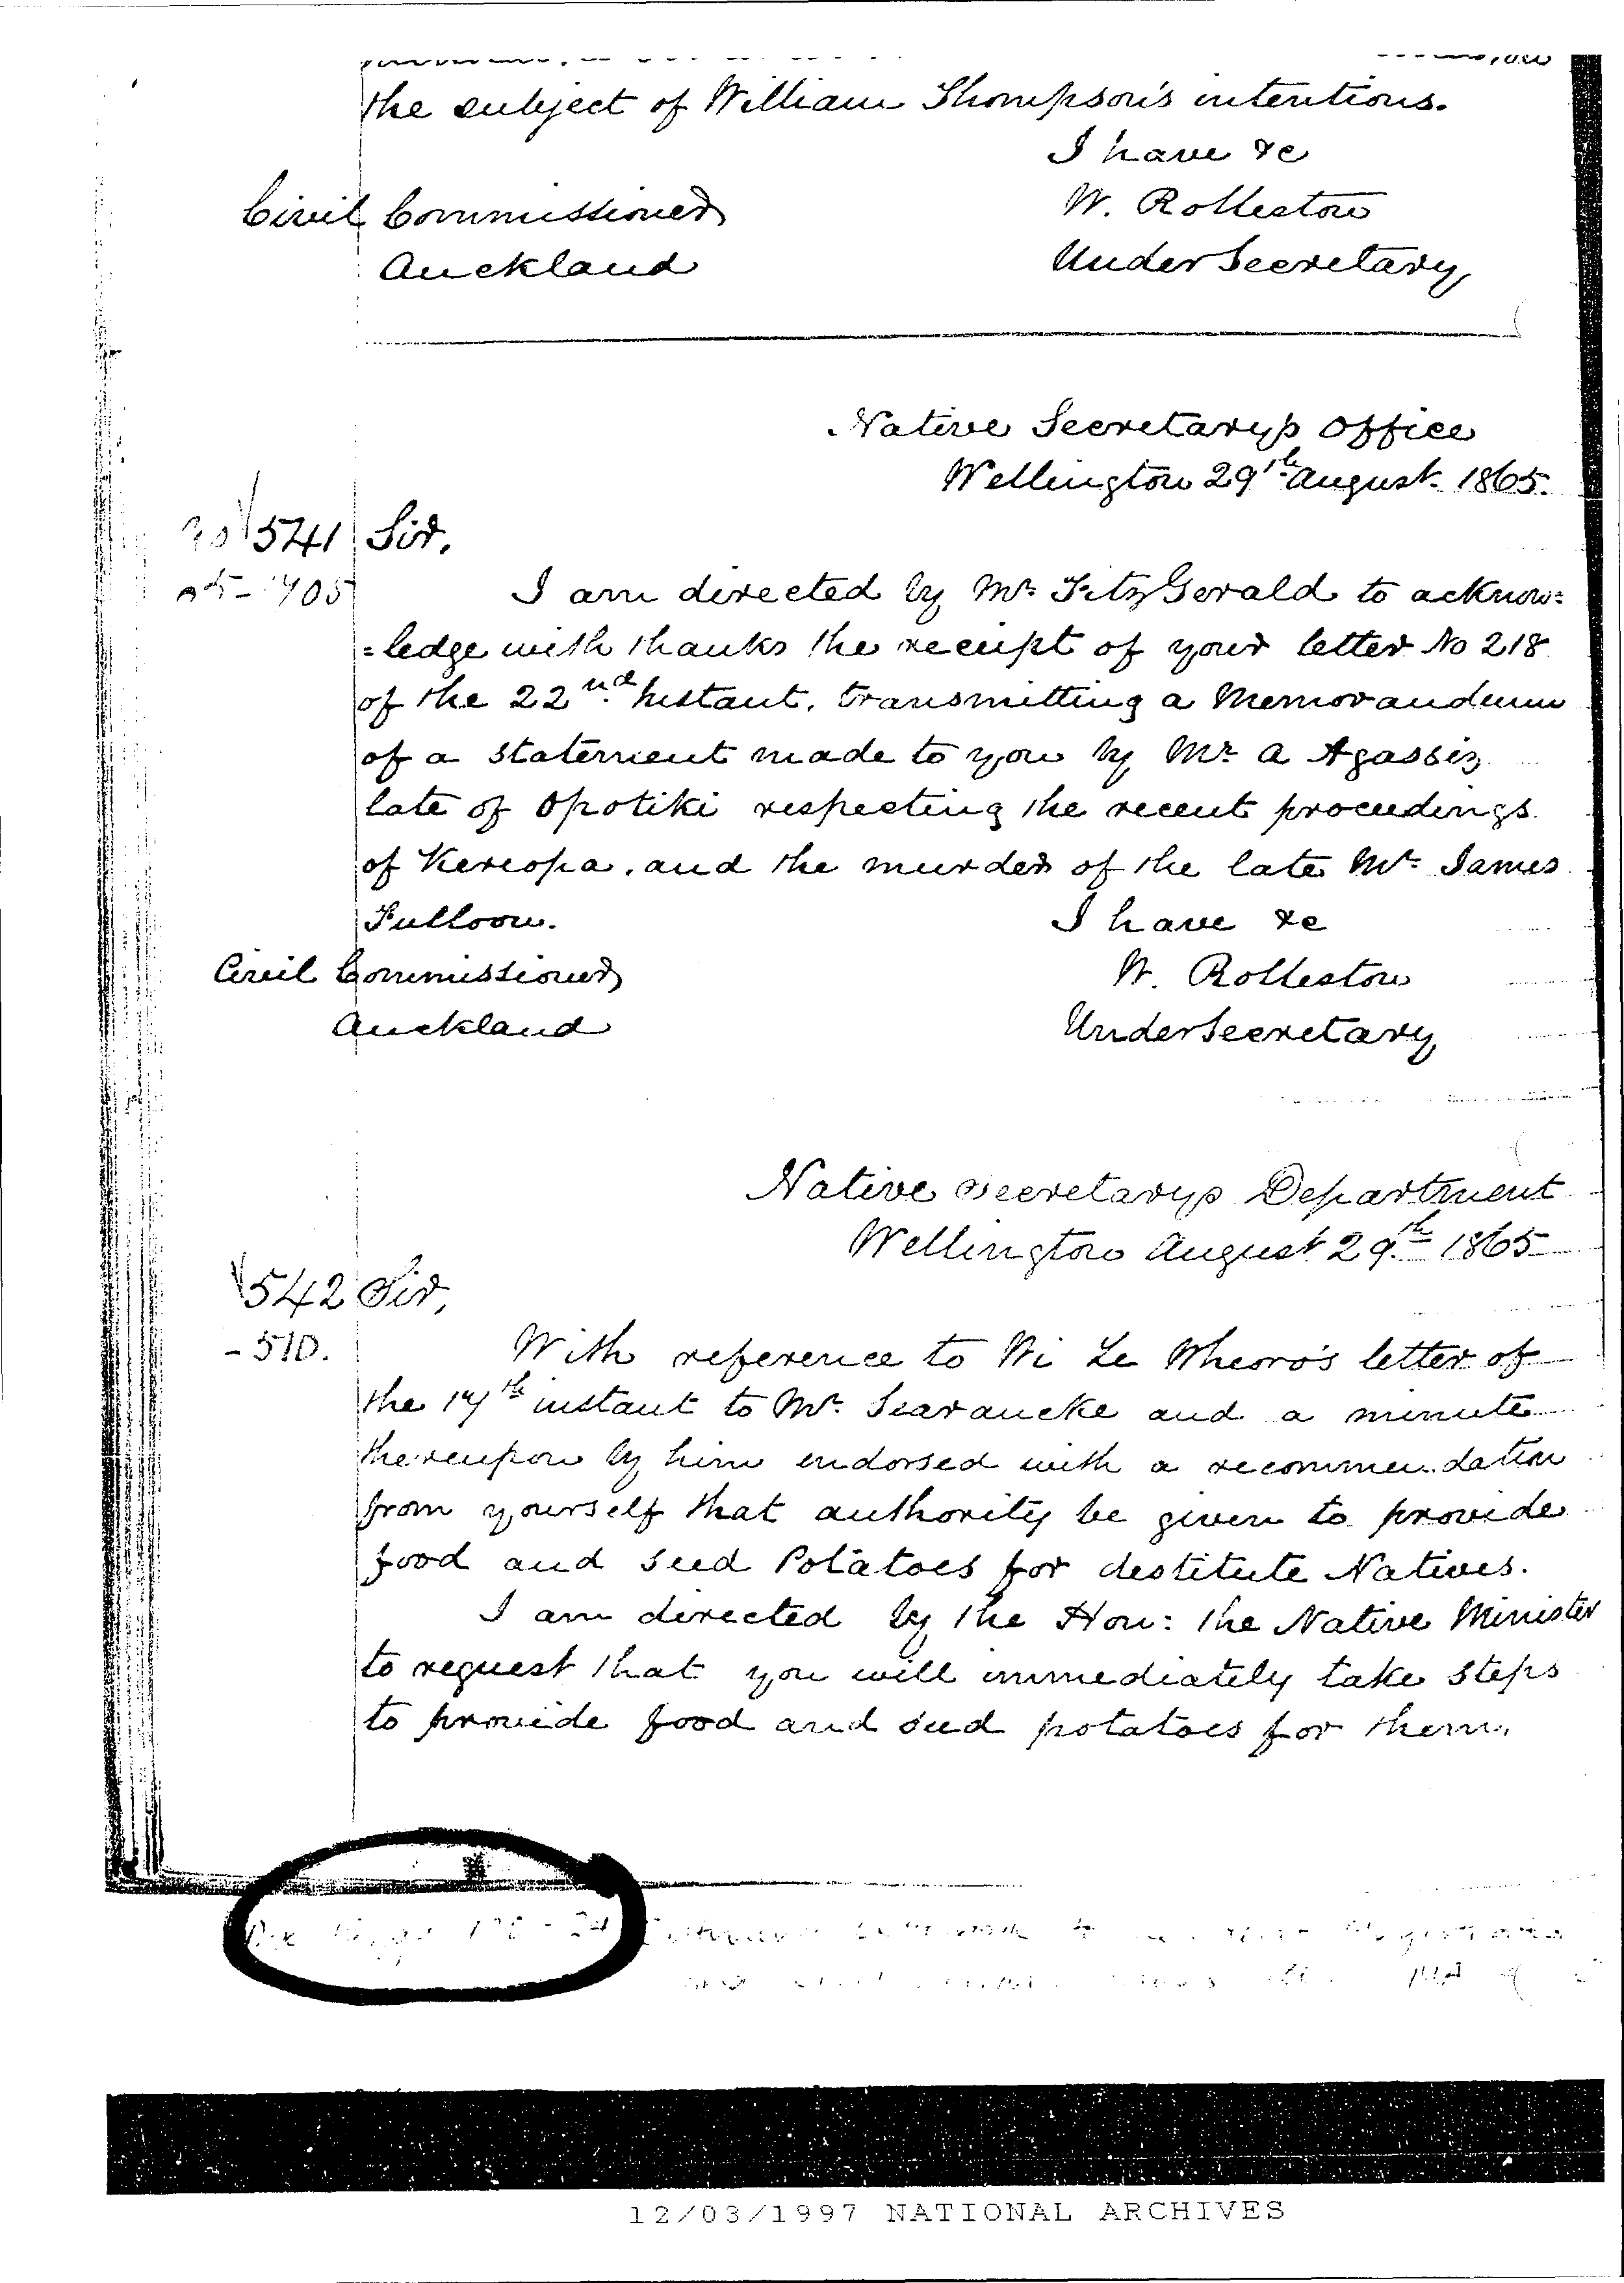 the subject of William Thompson's intentions.
I have &c
Civil Commissioner W. Rolleston
Auckland Under Secretary
Native Secretary's Office
Wellington 29th August. 1865.
541 Sir,
405
I am directed by Mr. FitzGerald to acknow:
=ledge with thanks the receipt of your letter No 218
of the 22nd Instant, transmitting a Memorandum
of a statement made to you by Mr. A Agassiz
late of Opotiki respecting the recent proceedings
of Kereopa, and the murder of the late Mr. James
Fulloon. I have &c
Civil Commissioner W. Rolleston
Auckland Under Secretary
Native Secretary's Department
Wellington August 29th 1865
542 Sir,
- 510.
With reference to Wi Te Wheoro's letter of
the 17th instant to Mr. Searancke and a minute
thereupon by him endorsed with a recommendation
from yourself that authority be given to provide
food and seed Potatoes for destitute Natives.
I am directed by the Hon: the Native Minister
to request that you will immediately take steps
to provide food and seed potatoes for them.
12/03/1997 NATIONAL ARCHIVES